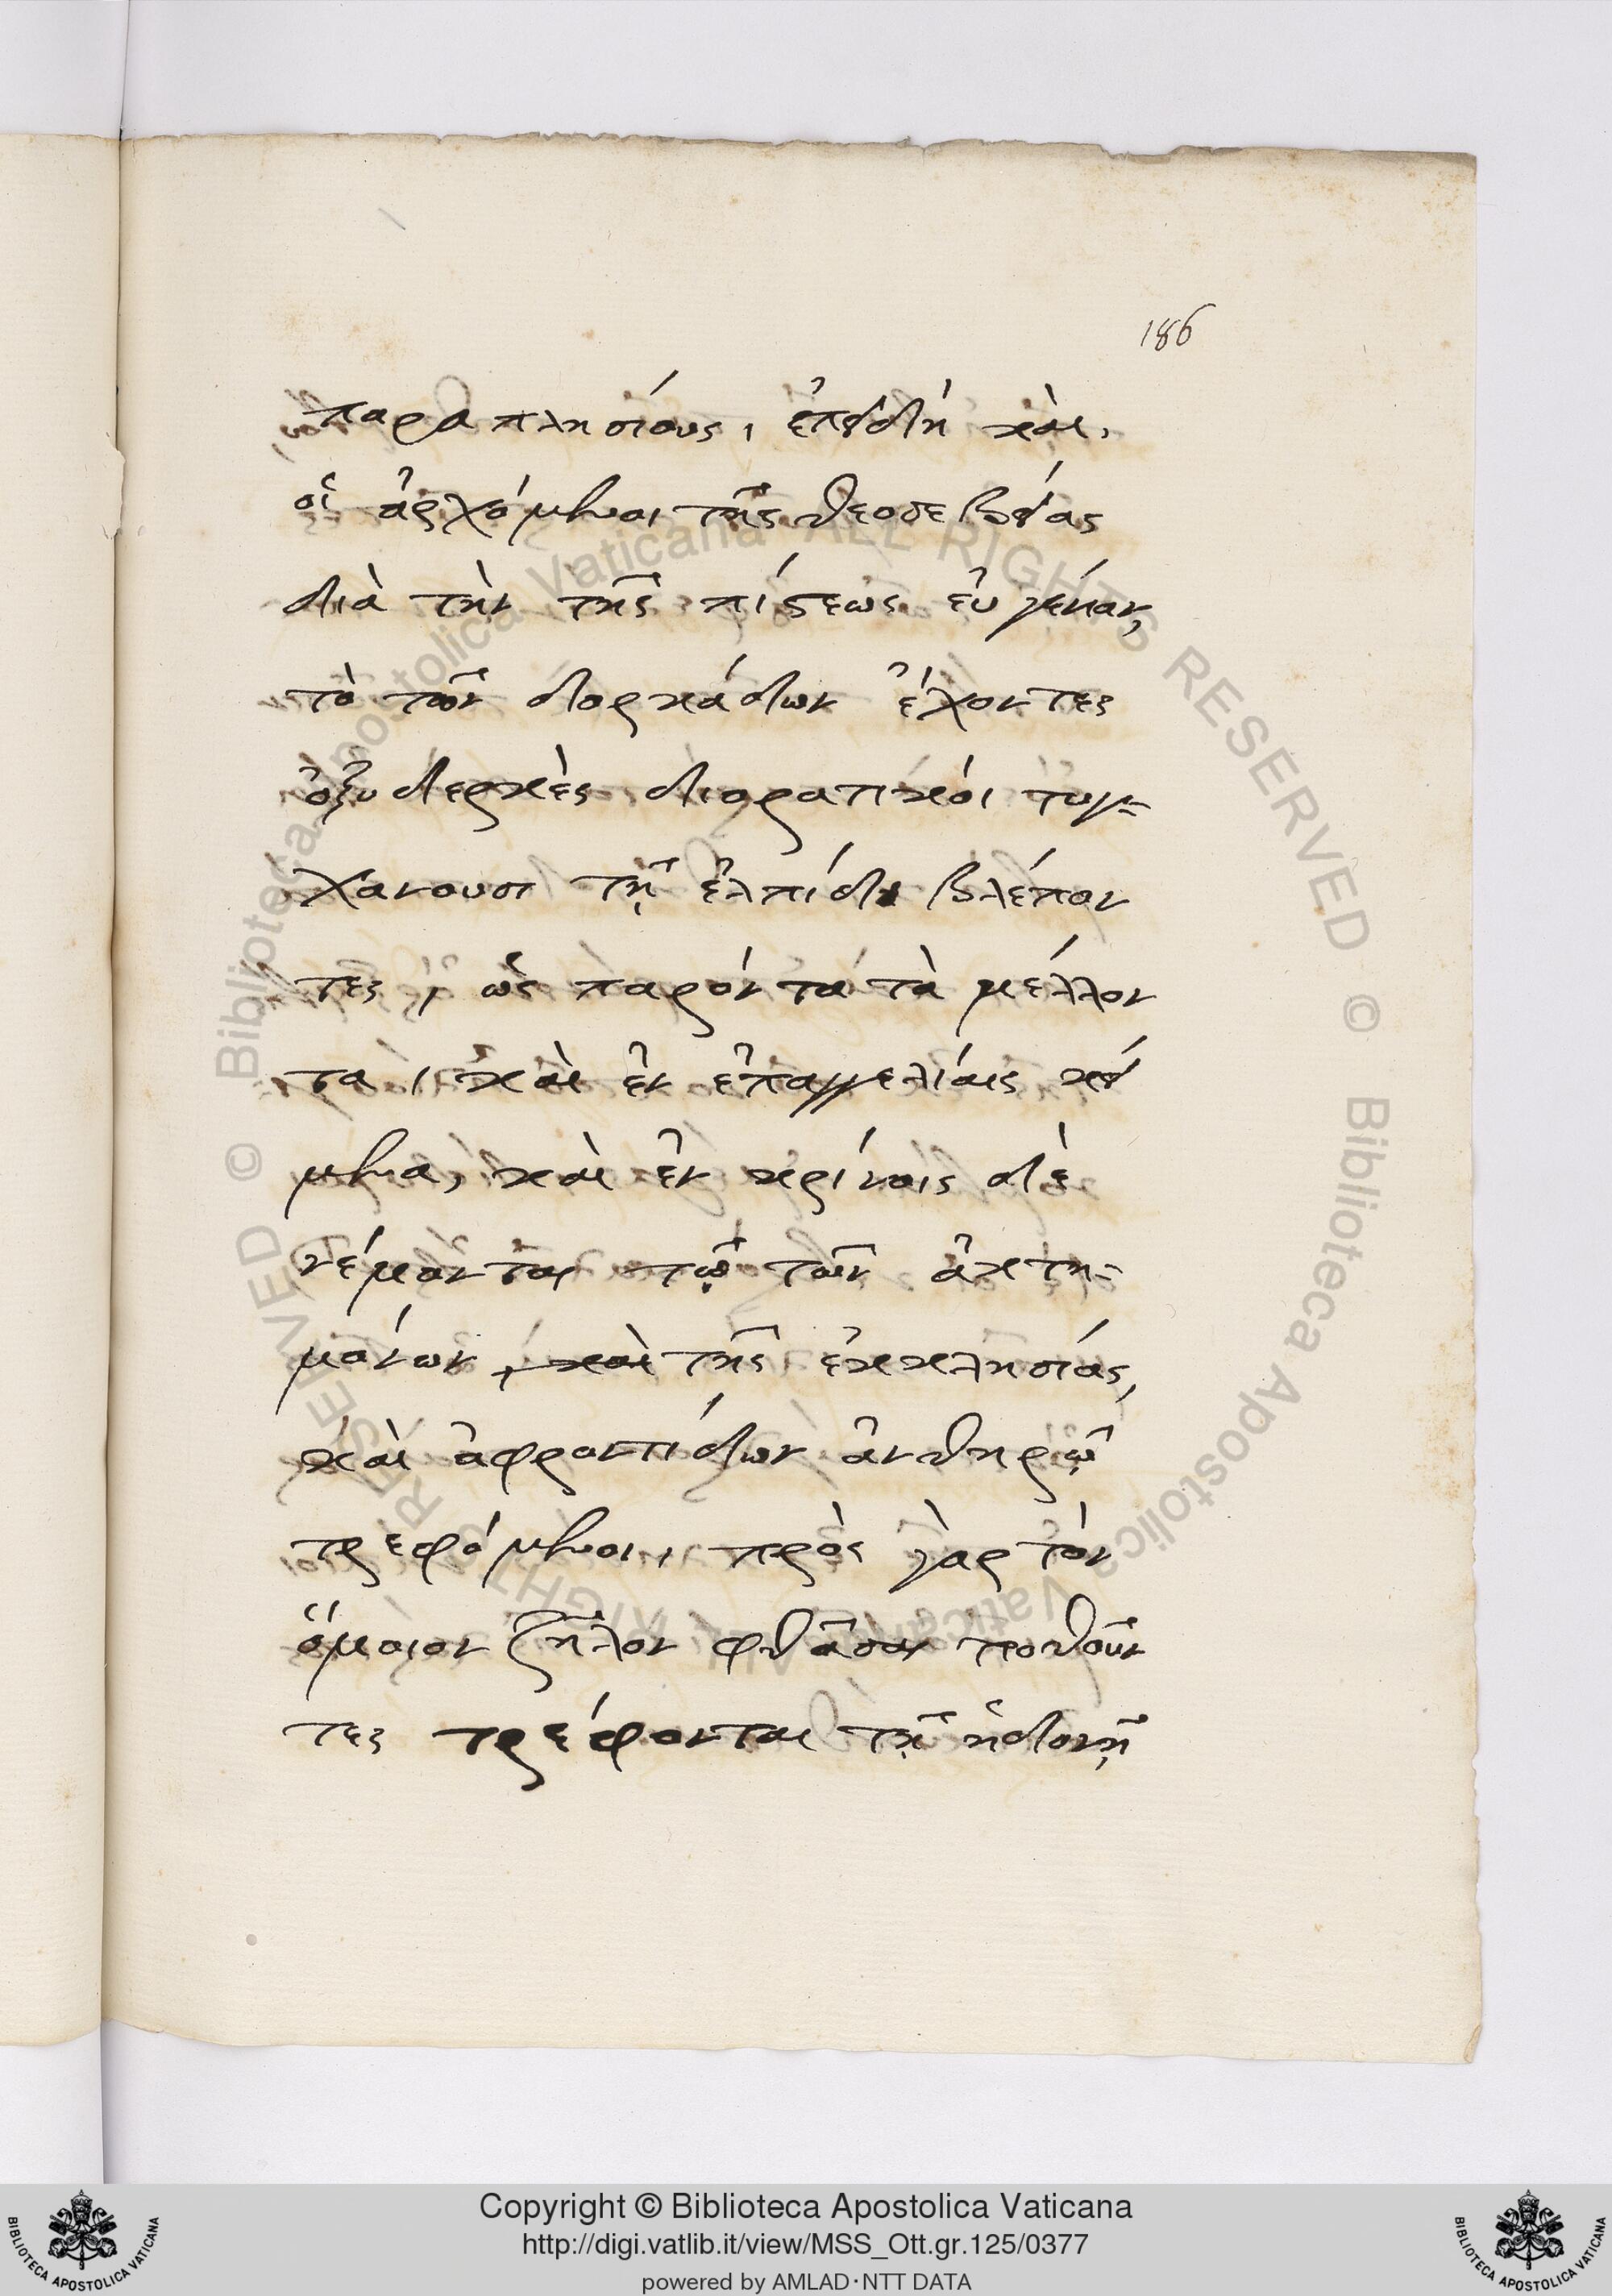 186
παραπλησίους, ἐπειδὴ καὶ,
οἱ ἀρχόμενοι τῆς θεοσεβείας
διὰ τὴν τῆς πίστεως εὐγένειαν,
τὸ τῶν δορκάδων ἔχοντες
ὀξυδερκὲς διορατικοὶ τυγ=
χανουσι τῇ ἐλπίδι βλέπον
τες, ὡς παρόντα τὰ μέλλον
τα, καὶ ἐν ἐπαγγελίαις κεί
μενα, καὶ ἐν κρίνοις δὲ
νέμονται τῷ τῶν ἀκτη=
μόνων, καὶ τῆς ἐκκλησίας,
καὶ ἀφροντίδων ἀνθηρῷ
τρεφόμενοι, πρὸς γὰρ τὸν
ὅμοιον ζῆλον φθᾶσαι ποθοῦν
τες τρέφονται τῇ ἡδονῇ
© Biblioteca Apostolica Vaticana ALL RIGHTS RESERVED © Biblioteca Apostolica Vaticana ALL RIGHTS RESERVED
Copyright © Biblioteca Apostolica Vaticana
http://digi.vatlib.it/view/MSS_Ott.gr.125/0377
powered by AMLAD·NTT DATA
BIBLIOTECA APOSTOLICA VATICANA
BIBLIOTECA APOSTOLICA VATICANA